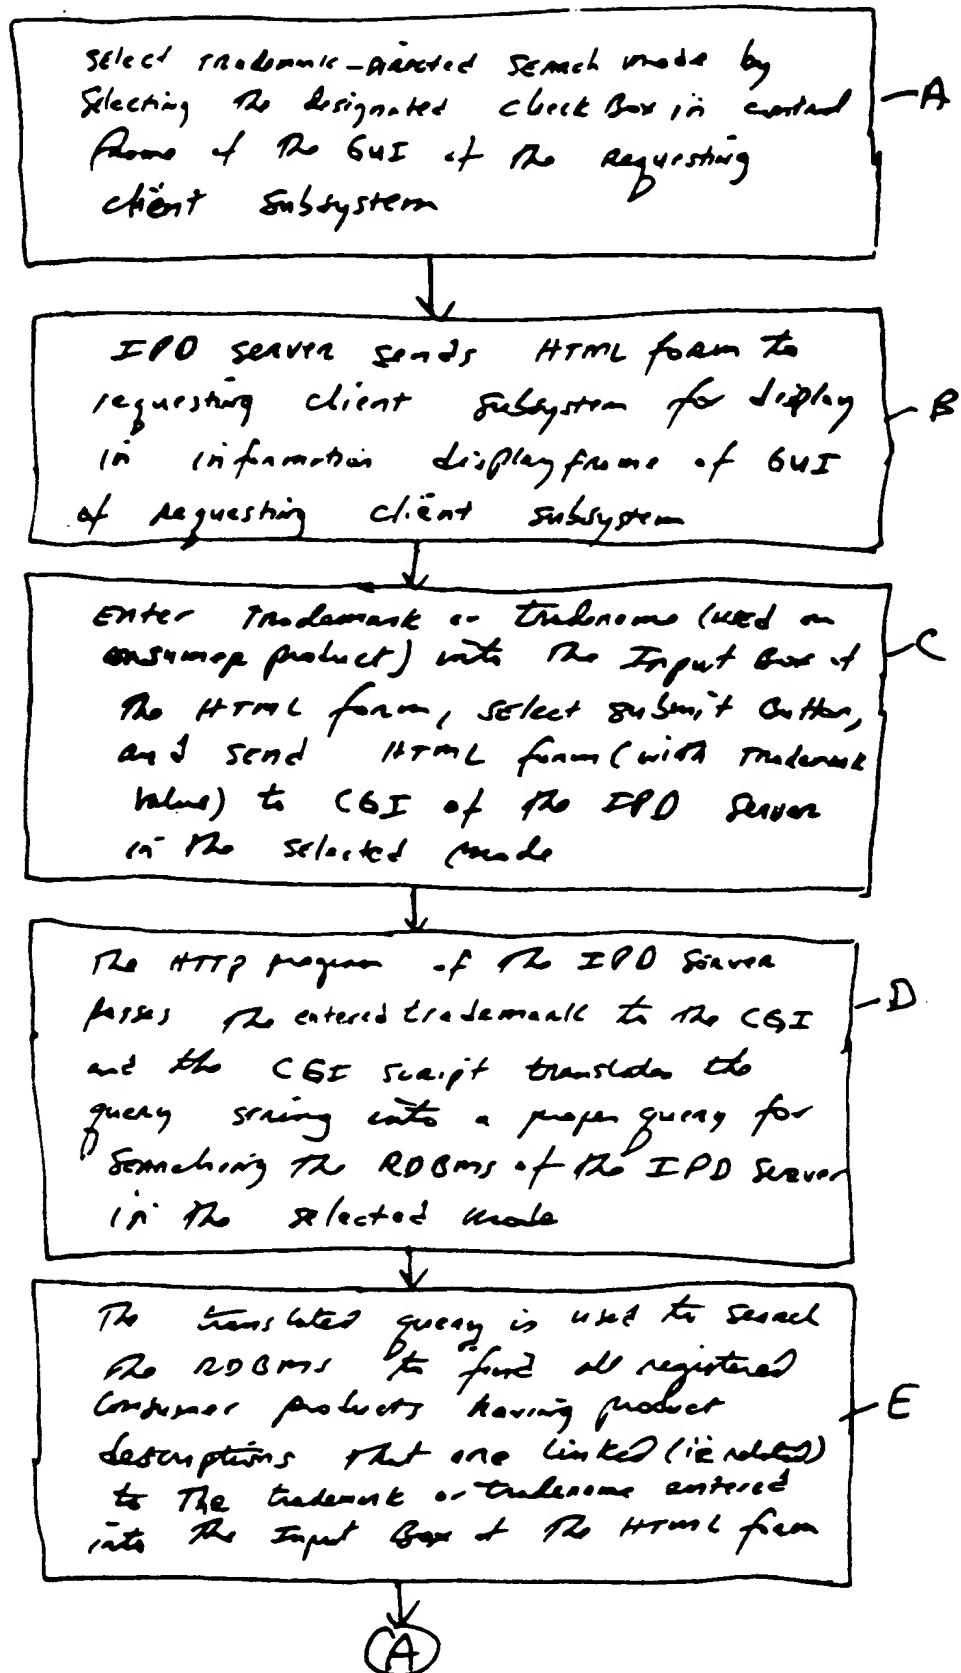 Select Trademark-Directed Search mode by
Selecting the designated check Box in control
frame of the GUI of the requesting
client Subsystem
A
IPD server sends HTML form to
requesting client subsystem for display
in information display frame of GUI
of requesting client subsystem
B
Enter Trademark or tradename (used on
consumer product) into the Input Box of
the HTML form, select submit Button,
and send HTML form (with trademark
value) to CGI of the IPD Server
in the selected mode
C
The HTTP program of the IPD Server
passes the entered trademark to the CGI
and the CGI script translates the
query string into a proper query for
Searching the RDBMS of the IPD Server
in the selected mode
D
The translated query is used to search
the RDBMS to find all registered
Consumer products having product
descriptions that are linked (ie related)
to The trademark or tradename entered
into the Input Box of the HTML form
E
A